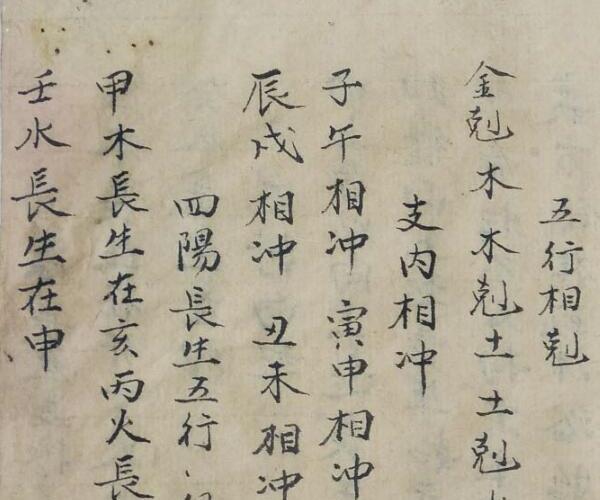 五行相剋
金剋木木剋土土剋
支内相冲
子午相冲寅申相冲
辰戍相冲丑未相冲
四陽長生五行
甲木長生在亥丙火長
壬水長生在申